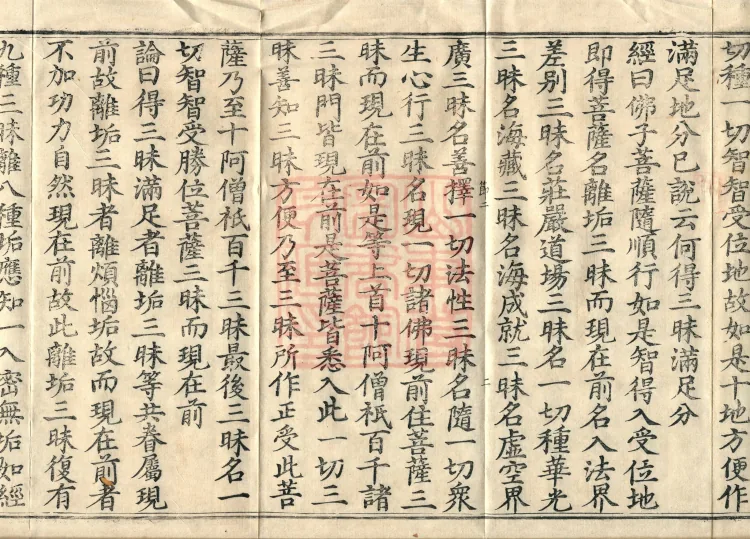 切種一切智智受位地故如是十地方便作
滿足地分已說云何得三昧滿足分
經曰佛子菩薩隨順行如是智得入受位地
即得菩薩名離垢三昧而現在前名入法界
差别三昧名莊嚴道場三昧名一切種華光
三昧名海藏三昧名海成就三昧名虛空界
廣三昧名善擇一切法性三昧名隨一切衆
生心行三昧名現一切諸佛現前住菩薩三
昧而現在前如是等上首十阿僧祇百千諸
三昧門皆現在前是菩薩皆悉入此一切三
昧善知三昧方便乃至三昧所作正受此菩
薩乃至十阿僧祇百千三昧最後三昧名一
切智智受勝位菩薩三昧而現在前
論曰得三昧滿足者離垢三昧等共眷屬現
前故離垢三昧者離煩惱垢故而現在前者
不加功力自然現在前故此離垢三昧復有
九種三昧離八種垢應知一入密無垢如經